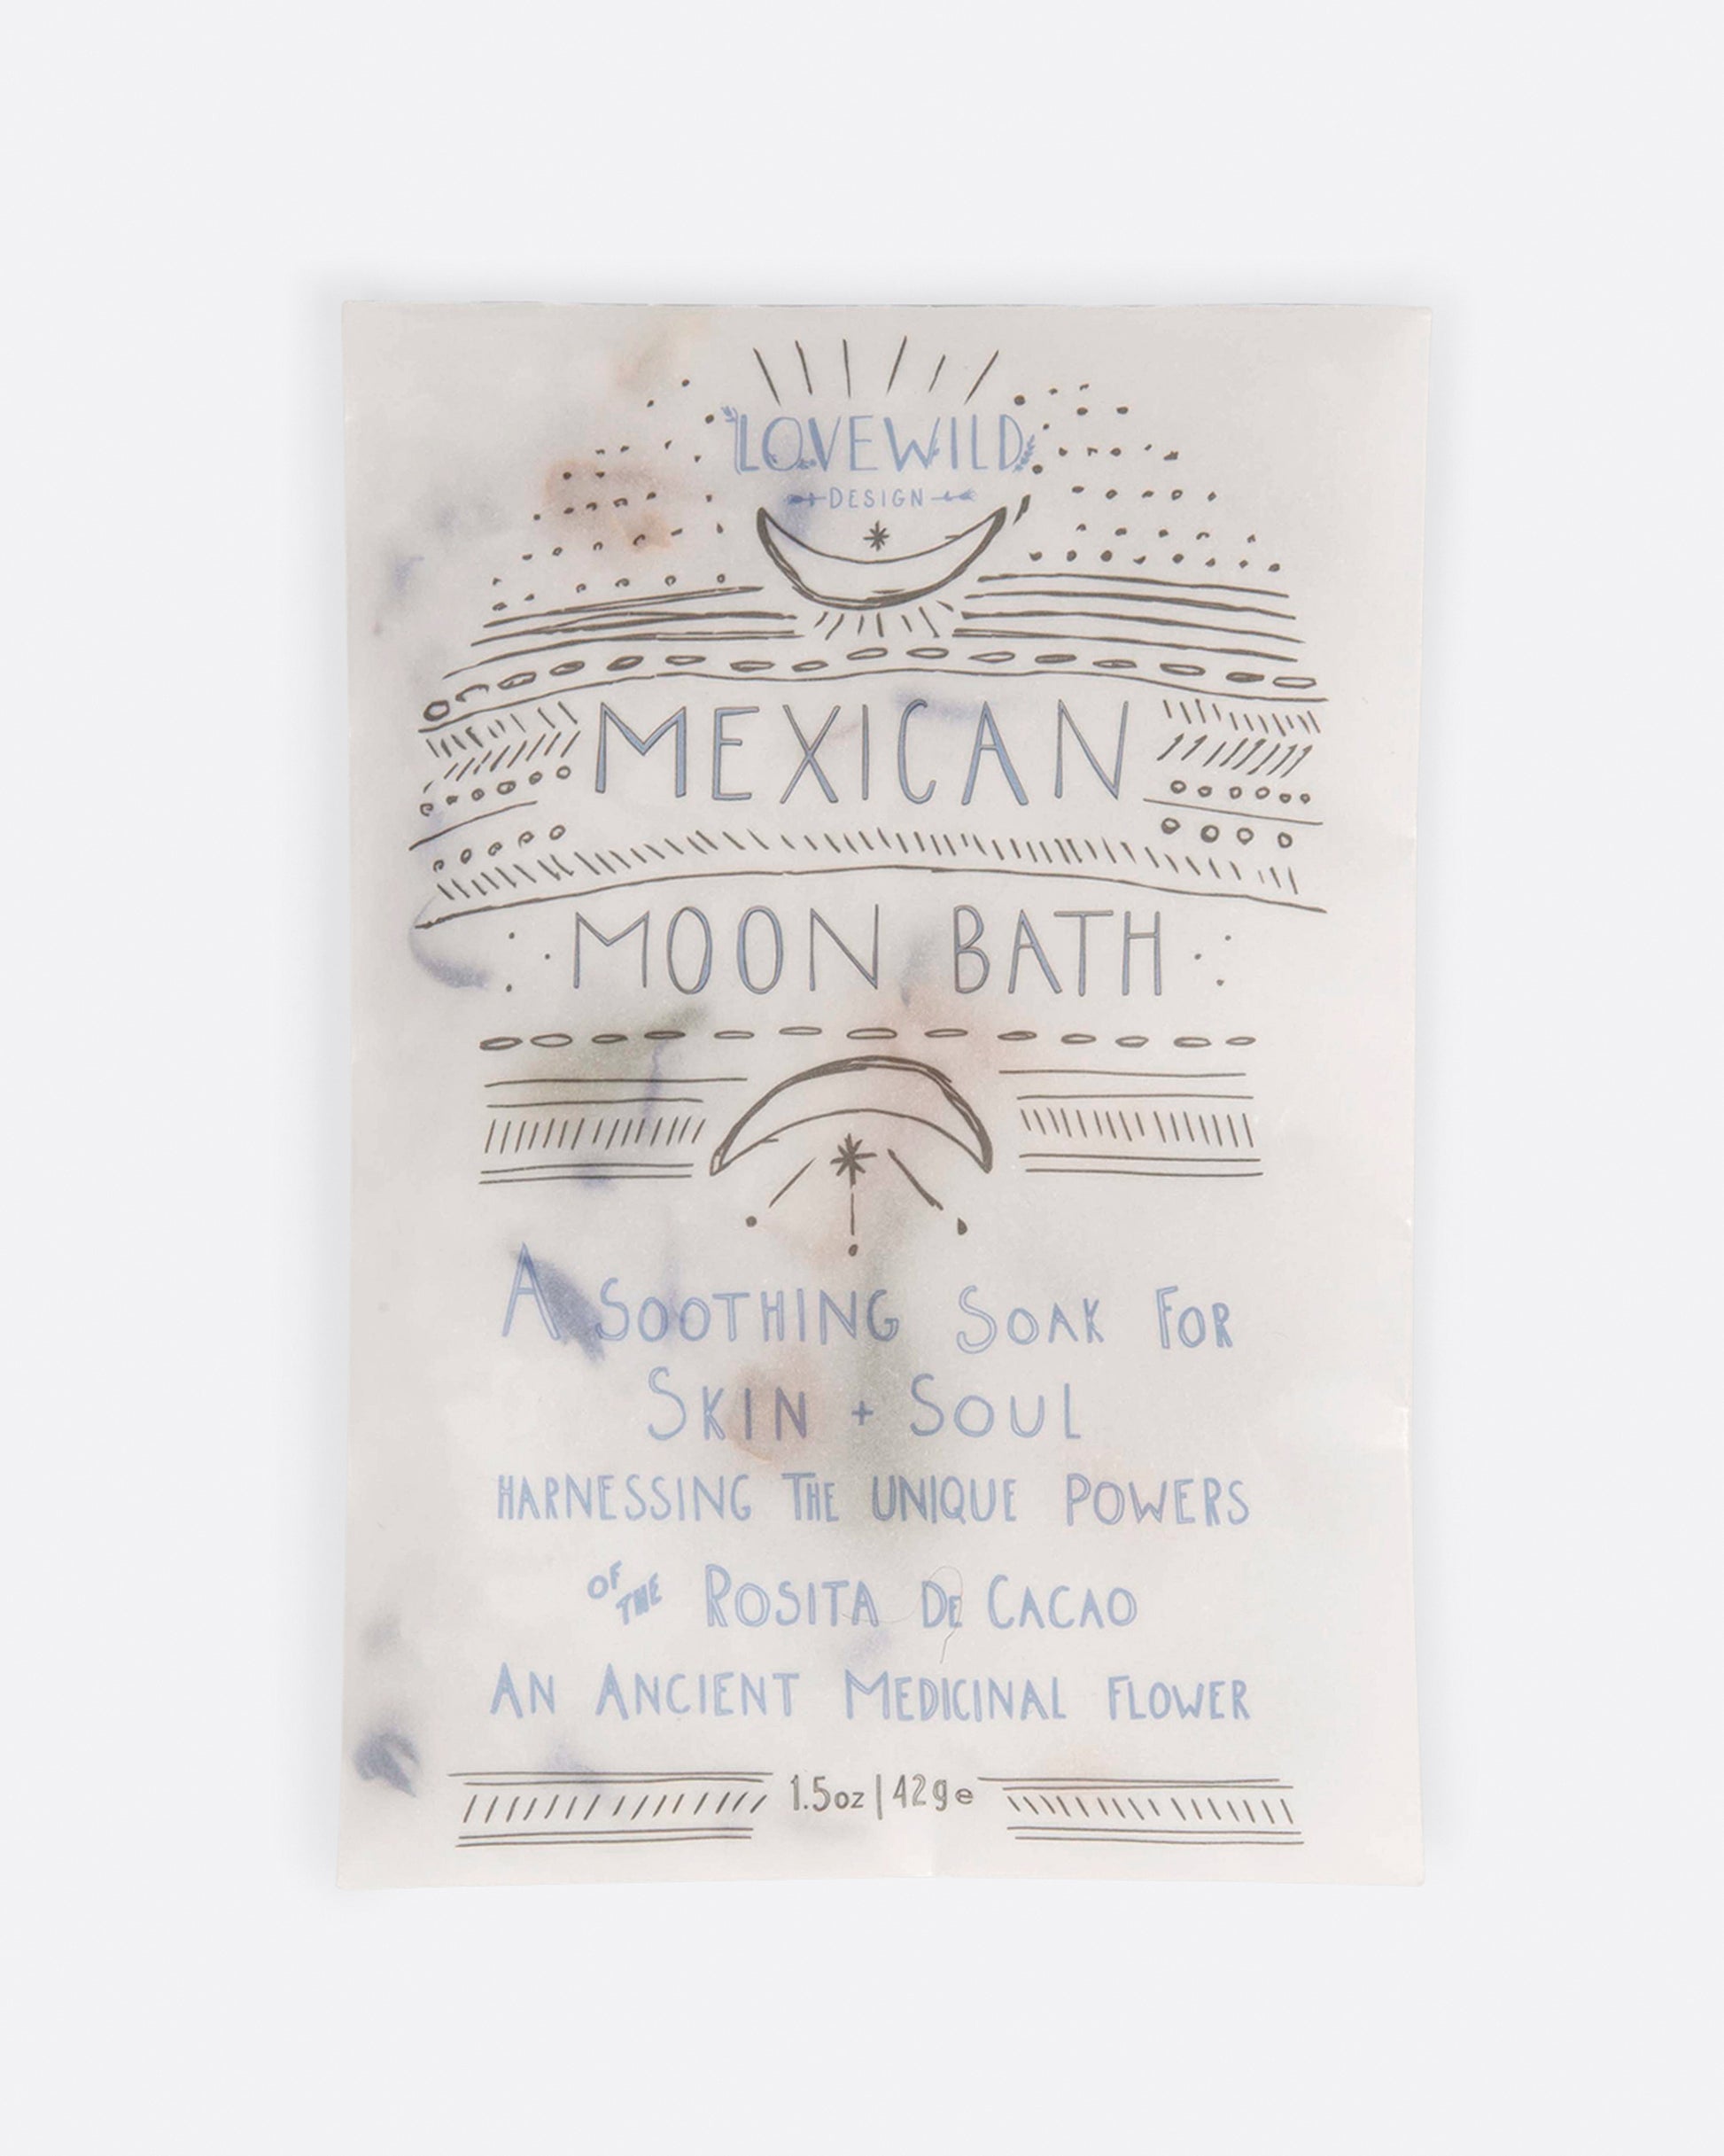 LOVEWILD
DESIGN
MEXICAN
MOON BATH
A SOOTHING SOAK FOR
SKIN + SOUL
HARNESSING THE UNIQUE POWERS
OF THE ROSITA DE CACAO
AN ANCIENT MEDICINAL FLOWER
1.5oz | 42g e